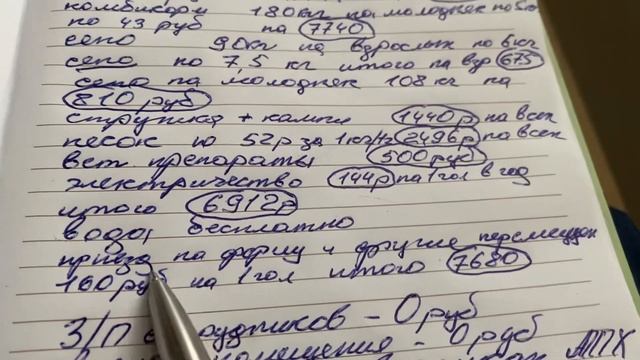 комбикорм 180кг на молодняк по 5кг
по 43 руб на 7740
сено 90кг на взрослых по 6кг
сено по 7,5 кг итого на взр 675
сено на молодняк 108 кг на
810 руб
стружка + камни 1440р на всех
песок по 52р за 1кг 2496р на всех
вет препараты 500 руб
электричество 144р на 1 гол в год
итого 6912р
вода бесплатно
привоз на ферму и другие перемещен
160 руб на 1 гол итого 7680
З/П сотрудников - 0 руб
помещения - 0 руб АПХ